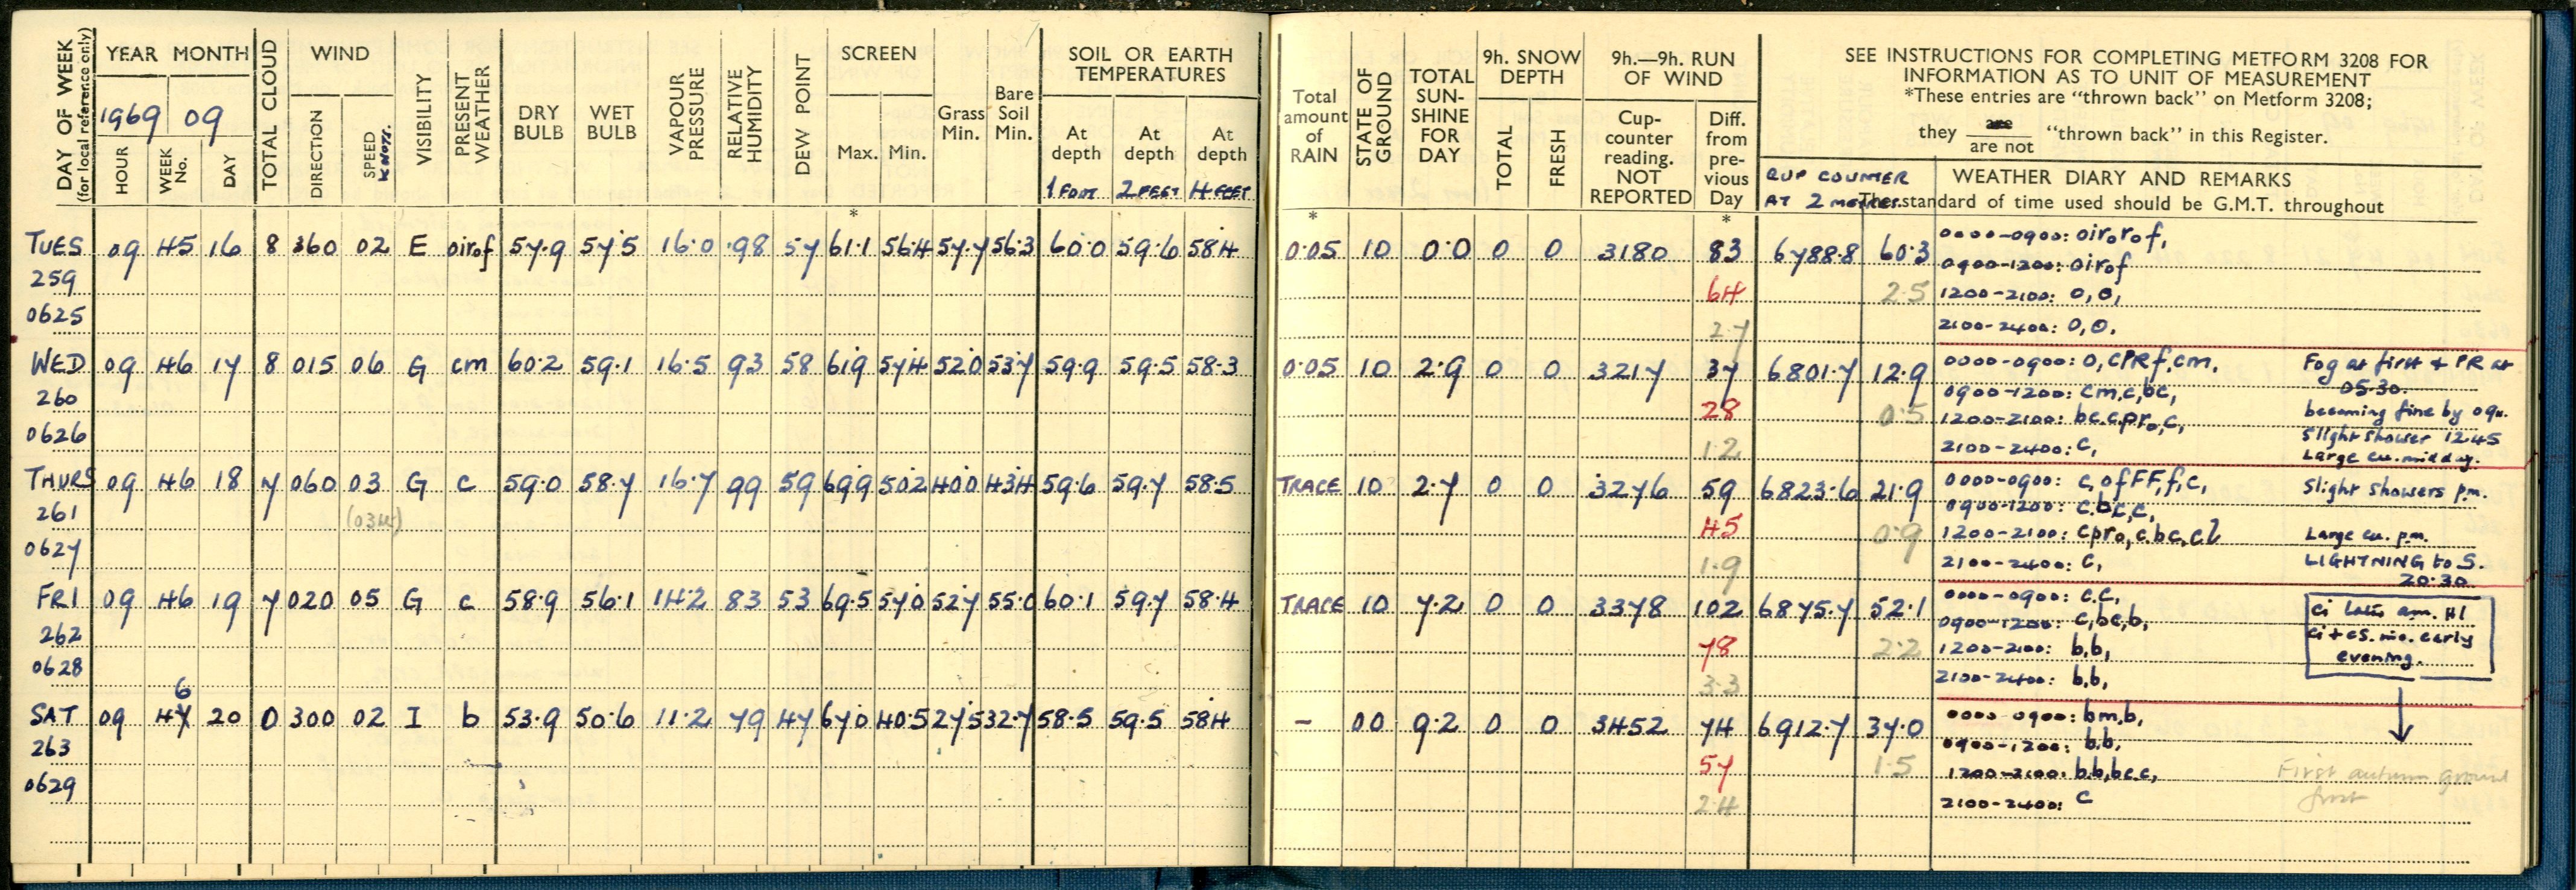 DAY OF WEEK
(for local reference only)
YEAR MONTH
1969 09
HOUR
WEEK No.
DAY
TOTAL CLOUD
WIND
DIRECTION
SPEED
KNOTS.
VISIBILITY
PRESENT WEATHER
DRY BULB
WET BULB
VAPOUR PRESSURE
RELATIVE HUMIDITY
DEW POINT
SCREEN
Max. Min.
Grass Min.
Bare Soil Min.
SOIL OR EARTH
TEMPERATURES
At depth At depth At depth
1 FOOT 2 FEET 4 FEET
*
TUES 09 45 16 8 360 02 E oirof 57.9 57.5 16.0 98 57 61.1 56.4 57.7 56.3 60.0 59.6 58.4
259
0625
WED 09 46 17 8 015 06 G cm 60.2 59.1 16.5 93 58 61.9 57.4 52.0 53.7 59.9 59.5 58.3
260
0626
THURS 09 46 18 7 060 03 G c 59.0 58.7 16.7 99 59 69.9 50.2 40.0 43.4 59.6 59.7 58.5
261
0627
FRI 09 46 19 7 020 05 G c 58.9 56.1 14.2 83 53 69.5 57.0 52.7 55.0 60.1 59.7 58.4
262
0628
6
SAT 09 47 20 0 300 02 I b 53.9 50.6 11.2 79 47 67.0 40.5 27.5 32.7 58.5 59.5 58.4
263
0629
Total amount of RAIN
STATE OF GROUND
TOTAL SUN-SHINE FOR DAY
9h. SNOW DEPTH
TOTAL
FRESH
9h.—9h. RUN OF WIND
Cup-counter reading. NOT REPORTED
Diff. from pre-vious Day
SEE INSTRUCTIONS FOR COMPLETING METFORM 3208 FOR
INFORMATION AS TO UNIT OF MEASUREMENT
*These entries are "thrown back" on Metform 3208;
they are / are not "thrown back" in this Register.
CUP COUNTER
AT 2 metres.
WEATHER DIARY AND REMARKS
The standard of time used should be G.M.T. throughout
* *
0.05 10 0.0 0 0 3180 83 6788.8 60.3 0000-0900: oirorof,
0900-1200: oirof
64 2.5 1200-2100: O,O,
2.7 2100-2400: O,O.
0.05 10 2.9 0 0 3217 37 6801.7 12.9 0000-0900: O, CPRf, cm. Fog at first & PR at
05.30.
0900-1200: cm,c,bc,
28 0.5 1200-2100: bc.c.pro,c, becoming fine by 09h.
Slight shower 1245
1.2 2100-2400: C, Large cu. midday.
TRACE 10 2.7 0 0 3276 59 6823.6 21.9 0000-0900: c, ofFF, f, c, Slight showers p.m.
0900-1200: c.bc,c,
45 0.9 1200-2100: cpro, c.bc, cl Large cu. p.m.
1.9 2100-2400: C, LIGHTNING to S.
20.30
TRACE 10 7.2 0 0 3378 102 6875.7 52.1 0000-0900: c.c,
0900-1200: c,bc,b,
78 2.2 1200-2100: b,b,
evening.
3.3 2100-2400: b,b,
- 00 9.2 0 0 3452 74 6912.7 37.0 0000-0900: bm,b,
0900-1200: b.b,
57 1.5 1200-2100: b.b,bc.c, First autumn ground
frost
2.4 2100-2400: c